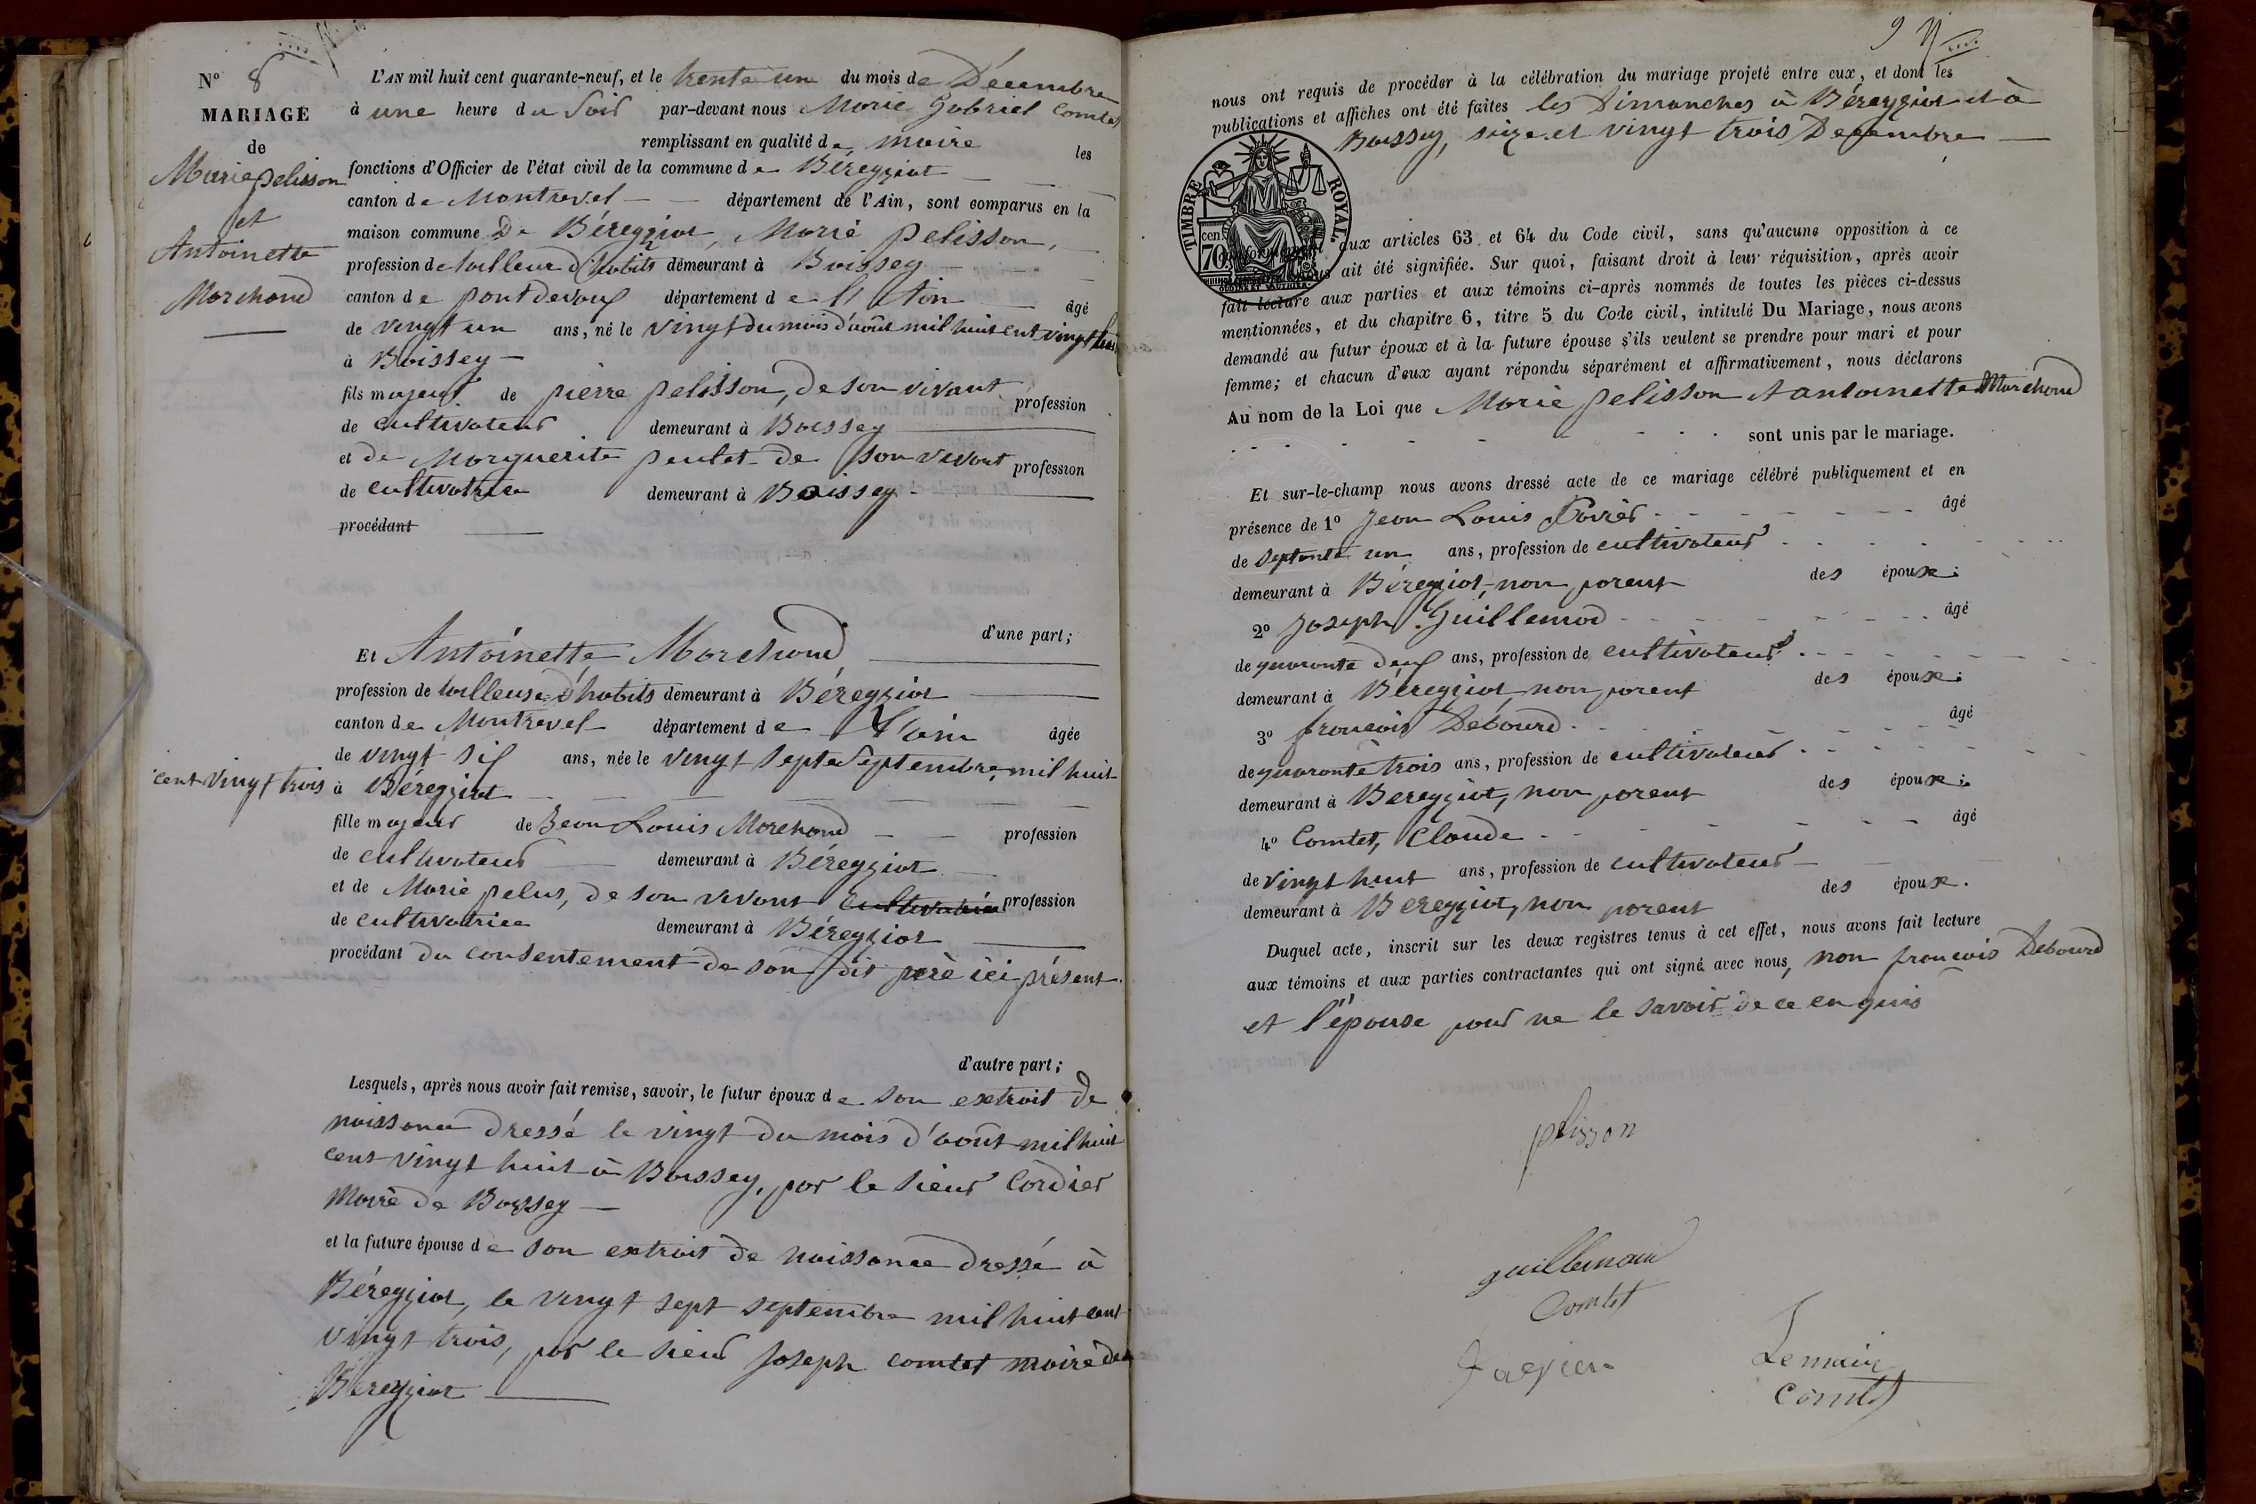 N° 8
MARIAGE
de
Marie pelisson
et
Antoinette
Marchand
L'AN mil huit cent quarante-neuf, et le trente un du mois de Décembre
à une heure du Soir par-devant nous Marie Gabriel Comtet
remplissant en qualité de maire les
fonctions d'Officier de l'état civil de la commune de Béreyziat
canton de Montrevel département de l'Ain, sont comparus en la
maison commune De Béreyziat, Marie pelisson,
profession de tailleur d'habits demeurant à Boissey
canton de pontdevaux département de l'Ain âgé
de vingt un ans, né le vingt du mois d'août mil huit cent vingt huit
à Boissey
fils majeur de pierre pelisson, de son vivant profession
de cultivateur demeurant à Boissey
et de Marguerite peulet de son vivant profession
de cultivatrice demeurant à Boissey
procédant
d'une part;
Et Antoinette Marchand
profession de tailleuse d'habits demeurant à Béreyziat
canton de Montrevel département de l'ain âgée
de vingt six ans, née le vingt sept Septembre mil huit
cent vingt trois à Béreyziat
fille majeur de Jean Louis Marchand profession
de cultivateur demeurant à Béreyziat
et de Marie pelus, de son vivant cultivatrice profession
de cultivatrice demeurant à Béreyziat
procédant du consentement de son dit père ici présent.
d'autre part;
Lesquels, après nous avoir fait remise, savoir, le futur époux de son extrait de
naissance dressé le vingt du mois d'août mil huit
cent vingt huit à Boissey, par le sieur Cordier
Maire de Boissey
et la future épouse de son extrait de naissance dressé à
Béreyziat, le vingt sept septembre mil huit cent
vingt trois, par le sieur Joseph comtet maire de
Béreyziat
nous ont requis de procéder à la célébration du mariage projeté entre eux, et dont les
publications et affiches ont été faites les Dimanches à Béreyziat et à
Boissey, seize et vingt trois Decembre
TIMBRE ROYAL
70 cen.
Conformément aux articles 63 et 64 du Code civil, sans qu'aucune opposition à ce
nous ait été signifiée. Sur quoi, faisant droit à leur réquisition, après avoir
fait lecture aux parties et aux témoins ci-après nommés de toutes les pièces ci-dessus
mentionnées, et du chapitre 6, titre 5 du Code civil, intitulé Du Mariage, nous avons
demandé au futur époux et à la future épouse s'ils veulent se prendre pour mari et pour
femme; et chacun d'eux ayant répondu séparément et affirmativement, nous déclarons
Au nom de la Loi que Marie pelisson et antoinette Marchand
sont unis par le mariage.
Et sur-le-champ nous avons dressé acte de ce mariage célébré publiquement et en
présence de 1° Jean Louis âgé
de septante un ans, profession de cultivateur
demeurant à Béreyziat, non parent des époux.
2° Joseph Guillemod âgé
de quaronte deux ans, profession de cultivateur
demeurant à Béreyziat, non parent des époux.
3° francois Debourd âgé
de quaronte trois ans, profession de cultivateur
demeurant à Bereyziat, non parent des époux.
4° Comtet, Claude âgé
de vingt huit ans, profession de cultivateur
demeurant à Bereyziat, non parent des époux.
Duquel acte, inscrit sur les deux registres tenus à cet effet, nous avons fait lecture
aux témoins et aux parties contractantes qui ont signé avec nous, non francois Debourd
et l'épouse pour ne le savoir de ce enquis
plisson
guillemau
Comtet
Le maire
Comtet